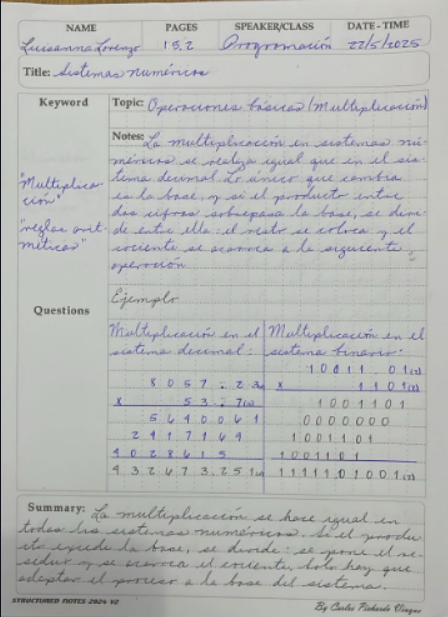 NAME PAGES SPEAKER/CLASS DATE - TIME
Luisanna Lorenzo 1 § 2 Programación 22/5/2025
Title: Sistemas numéricos
Keyword
Topic: Operaciones básicas (Multiplicación)
Notes: La multiplicación en sistemas nu-
méricos se realiza igual que en el sis-
tema decimal. Lo único que cambia
es la base, y si el producto entre
dos cifras sobrepasa la base, se divi-
de entre ella: el resto se coloca y el
cociente se acarrea a la siguiente
operación
"Multiplica-
ción"
"reglas arit-
méticas"
Questions
Ejemplo
Multiplicación en el
sistema decimal:
8 0 5 7 . 2 3
x 5 3 . 7
5 6 4 0 0 6 1
2 4 1 7 1 6 9
4 0 2 8 6 1 5
4 3 2 6 7 3 . 2 5 1
Multiplicación en el
sistema binario:
1 0 0 1 1 . 0 1 (2)
x 1 1 0 1 (2)
1 0 0 1 1 0 1
0 0 0 0 0 0 0
1 0 0 1 1 0 1
1 0 0 1 1 0 1
1 1 1 1 1 0 1 0 0 1 (2)
Summary: La multiplicación se hace igual en
todos los sistemas numéricos. Si el produ-
cto excede la base, se divide: se pone el re-
siduo y se acarrea el cociente. Solo hay que
adaptar el proceso a la base del sistema.
STRUCTURED NOTES 2024 V2
By Carlos Pichardo Viuque